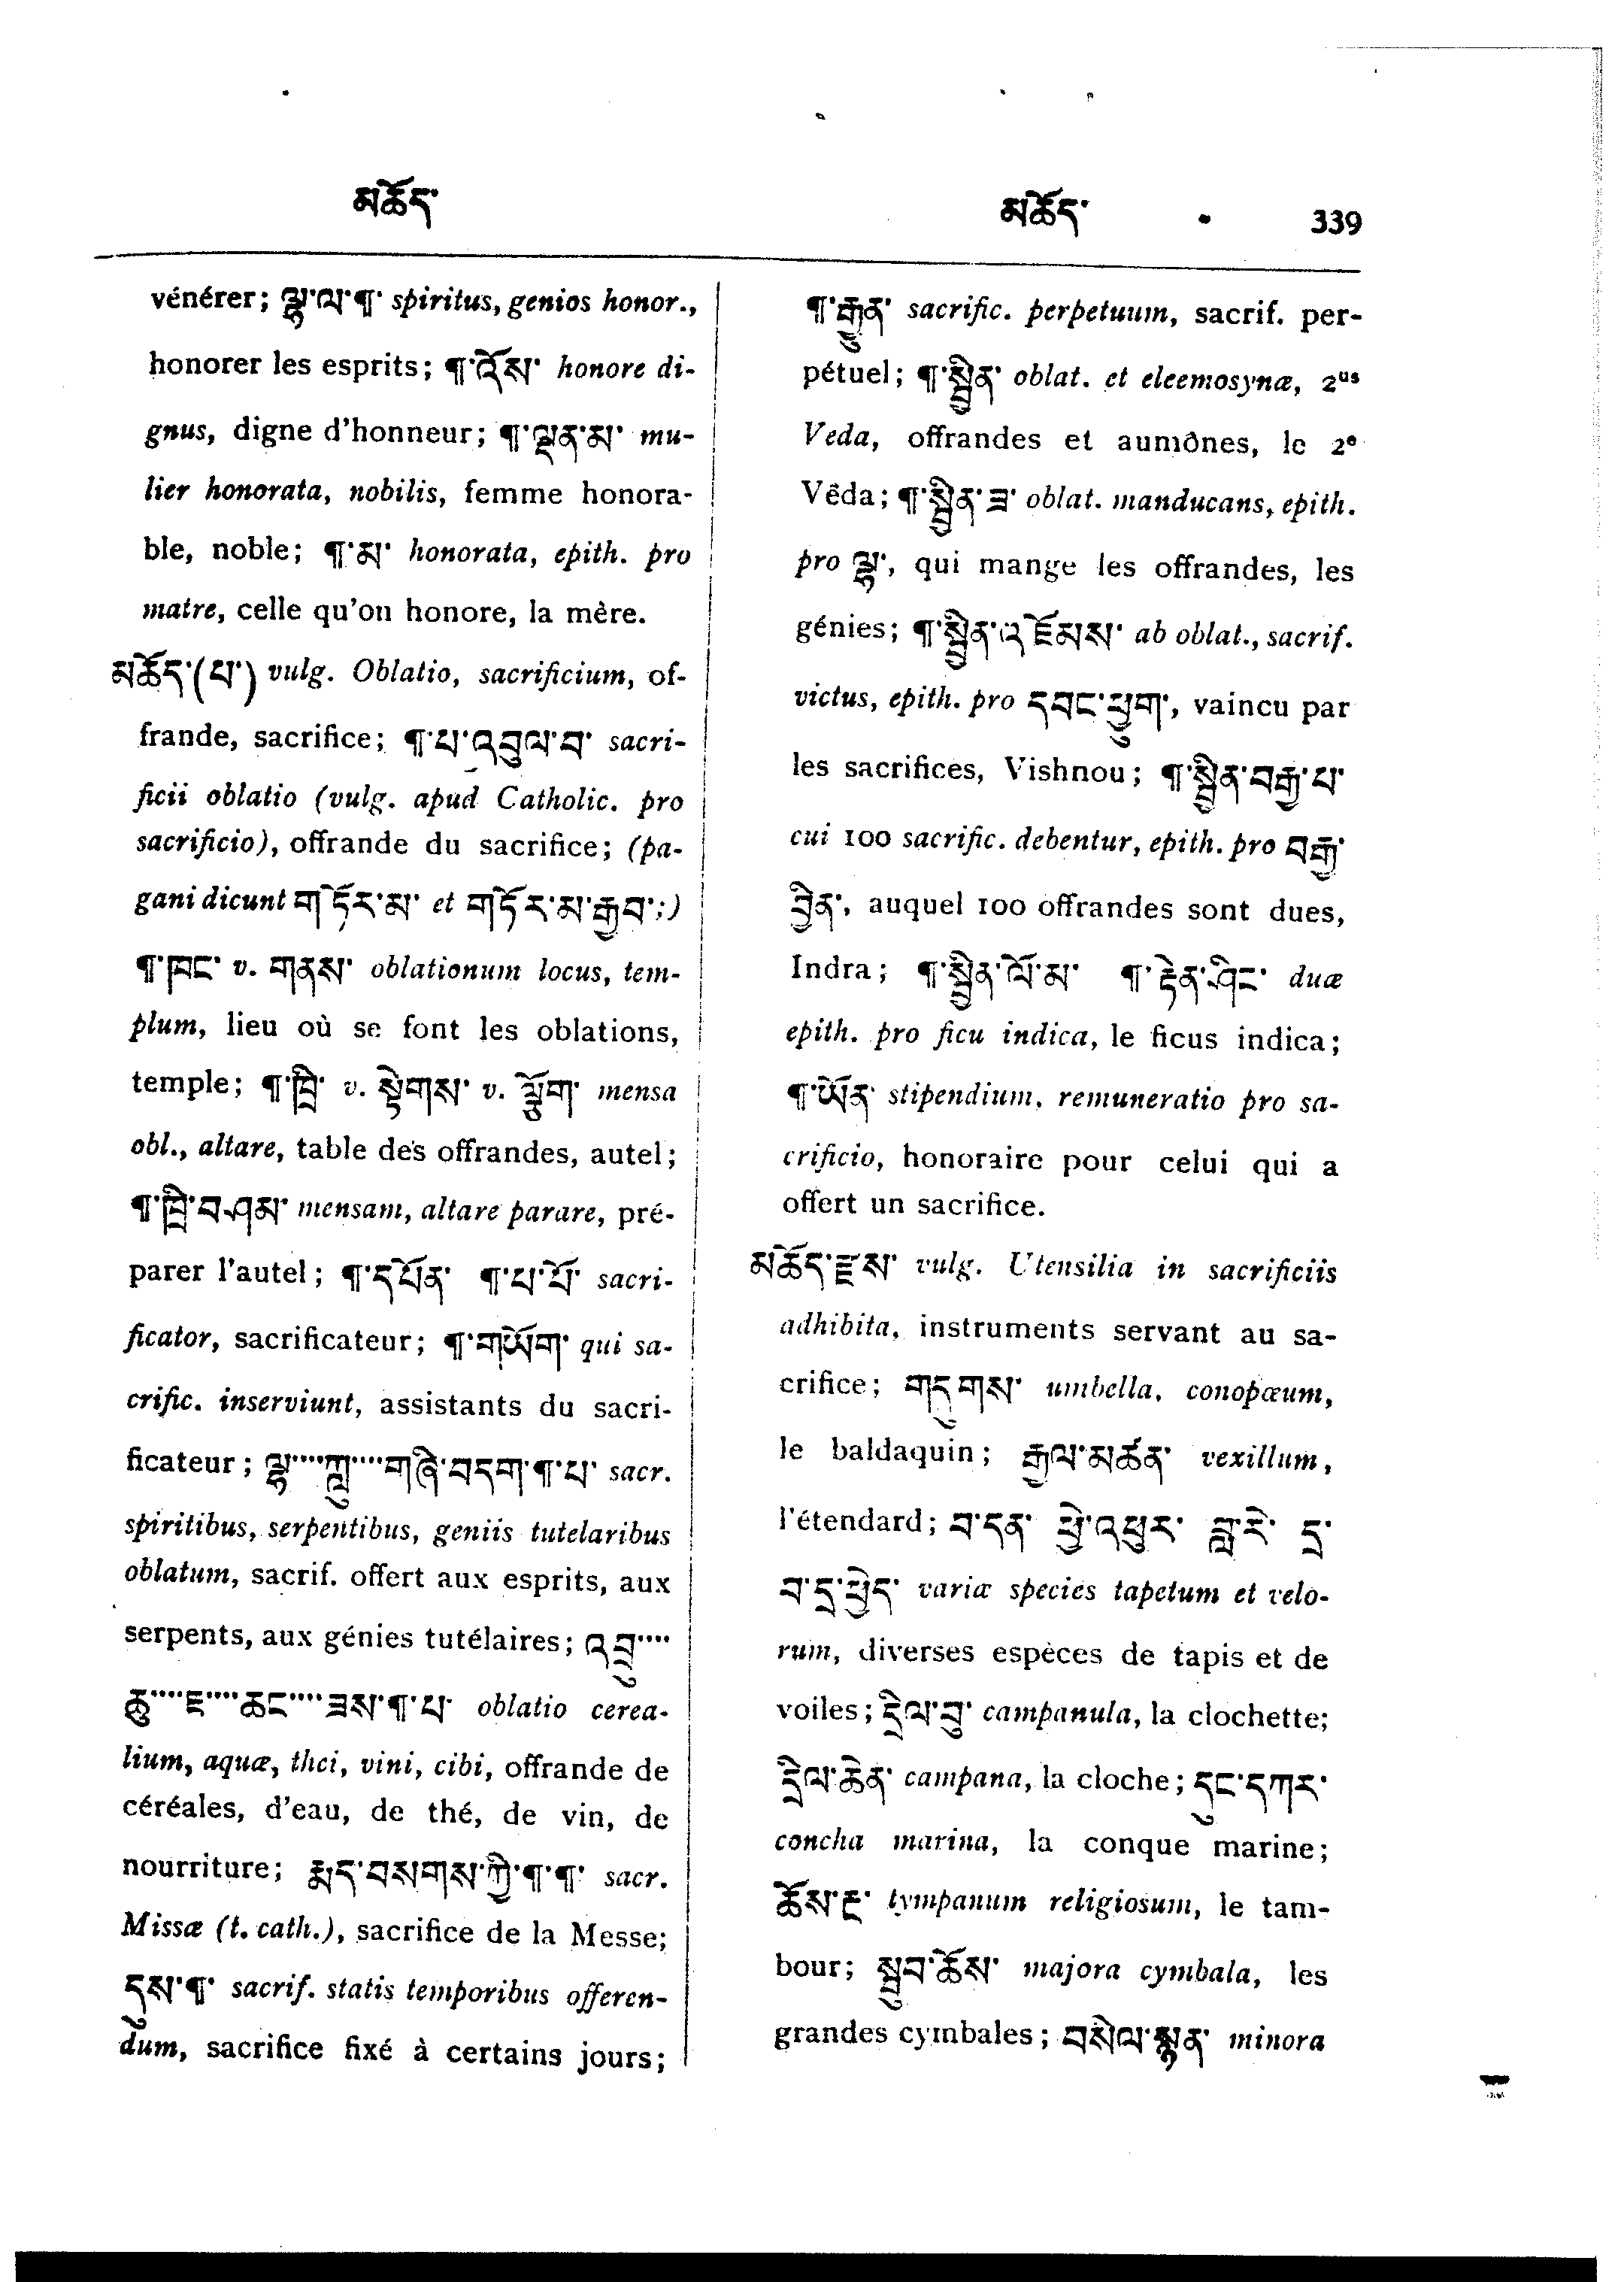 མཆོད་
མཆོད་ 339
vénérer; ལྷ་ལ་¶་ spiritus, genios honor.,
honorer les esprits; ¶་འོས་ honore di-
gnus, digne d'honneur; ¶་ལྡན་མ་ mu-
lier honorata, nobilis, femme honora-
ble, noble; ¶་མ་ honorata, epith. pro
matre, celle qu'on honore, la mère.
མཆོད་(པ་) vulg. Oblatio, sacrificium, of-
frande, sacrifice; ¶་པ་འབུལ་བ་ sacri-
ficii oblatio (vulg. apud Catholic. pro
sacrificio), offrande du sacrifice; (pa-
gani dicunt གཏོར་མ་ et གཏོར་མ་རྒྱབ་;)
¶་ཁང་ v. གནས་ oblationum locus, tem-
plum, lieu où se font les oblations,
temple; ¶་ཁྲི་ v. སྟེགས་ v. ལྕོག་ mensa
obl., altare, table des offrandes, autel;
¶་ཁྲི་བཤམ་ mensam, altare parare, pré-
parer l'autel; ¶་དཔོན་ ¶་པ་པོ་ sacri-
ficator, sacrificateur; ¶་གཡོག་ qui sa-
crific. inserviunt, assistants du sacri-
ficateur; ལྷ་་་་ཀླུ་་་་གཞི་བདག་¶་པ་ sacr.
spiritibus, serpentibus, geniis tutelaribus
oblatum, sacrif. offert aux esprits, aux
serpents, aux génies tutélaires; འབྲུ་་་་
ཆུ་་་་ཇ་་་་ཆང་་་་ཟས་¶་པ་ oblatio cerea-
lium, aquæ, thei, vini, cibi, offrande de
céréales, d'eau, de thé, de vin, de
nourriture; རྨད་བསགས་ཀྱི་¶་¶་ sacr.
Missæ (t. cath.), sacrifice de la Messe;
དུས་¶་ sacrif. statis temporibus offeren-
dum, sacrifice fixé à certains jours;
¶་རྒྱུན་ sacrific. perpetuum, sacrif. per-
pétuel; ¶་སྦྱིན་ oblat. et eleemosynæ, 2us
Veda, offrandes et aumônes, le 2e
Vêda; ¶་སྦྱིན་ཟ་ oblat. manducans, epith.
pro ལྷ་, qui mange les offrandes, les
génies; ¶་སྦྱིན་འཇོམས་ ab oblat., sacrif.
victus, epith. pro དབང་ཕྱུག་, vaincu par
les sacrifices, Vishnou; ¶་སྦྱིན་བརྒྱ་པ་
cui 100 sacrific. debentur, epith. pro བརྒྱ་
བྱིན་, auquel 100 offrandes sont dues,
Indra; ¶་སྦྱིན་ལོ་མ་ ¶་རྟེན་ཤིང་ duæ
epith. pro ficu indica, le ficus indica;
¶་ཡོན་ stipendium, remuneratio pro sa-
crificio, honoraire pour celui qui a
offert un sacrifice.
མཆོད་རྫས་ vulg. Utensilia in sacrificiis
adhibita, instruments servant au sa-
crifice; གདུགས་ umbella, conopœum,
le baldaquin; རྒྱལ་མཚན་ vexillum,
l'étendard; བ་དན་ ཕྱེ་འཕུར་ བླ་རེ་ དྲ་
བ་དྲ་ཕྱེད་ variæ species tapetum et velo-
rum, diverses espèces de tapis et de
voiles; དྲིལ་བུ་ campanula, la clochette;
དྲིལ་ཆེན་ campana, la cloche; དུང་དཀར་
concha marina, la conque marine;
ཆོས་རྔ་ tympanum religiosum, le tam-
bour; སྦུབ་ཆོས་ majora cymbala, les
grandes cymbales; བསེལ་སྙན་ minora